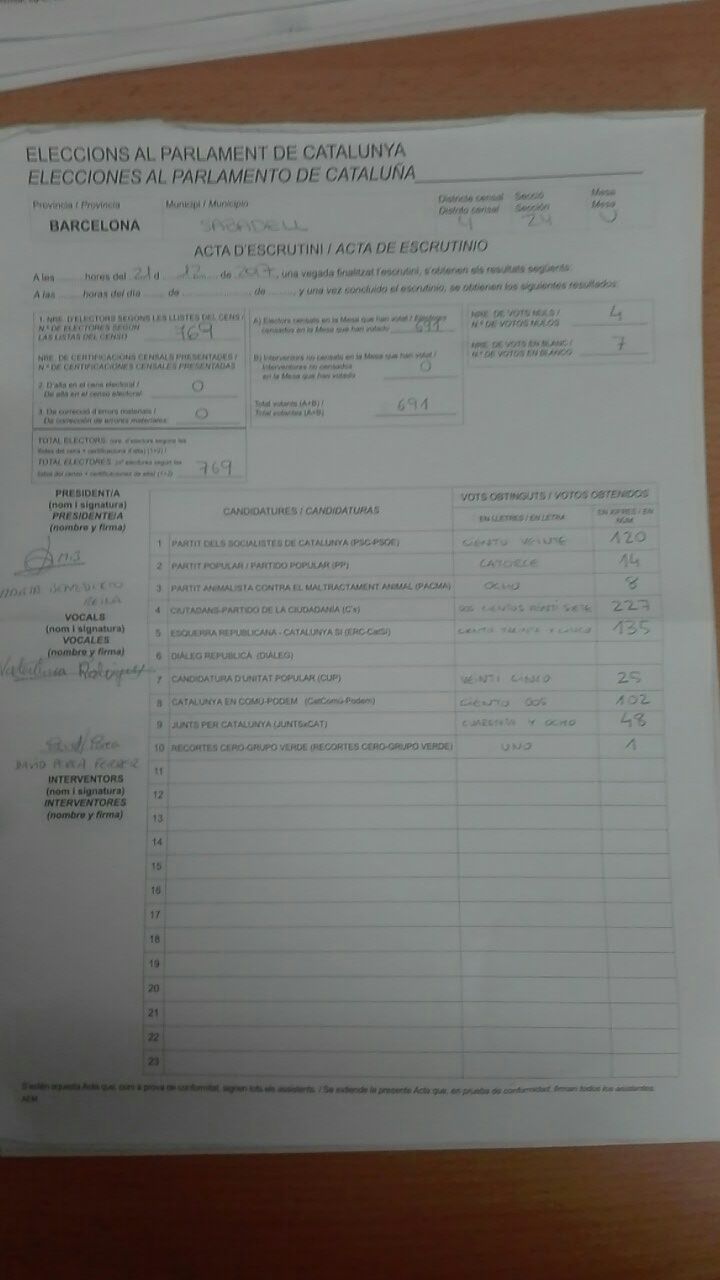 ELECCIONS AL PARLAMENT DE CATALUNYA
ELECCIONES AL PARLAMENTO DE CATALUÑA
Província / Provincia
BARCELONA
Municipi / Municipio
SABADELL
Districte censal Secció Mesa
Distrito censal Sección Mesa
4 24 U
ACTA D'ESCRUTINI / ACTA DE ESCRUTINIO
A les ........ hores del 21 d ... 12 ... de 2017, una vegada finalitzat l'escrutini, s'obtenen els resultats següents:
A las ........ horas del día ........ de ........ de ........, y una vez concluido el escrutinio, se obtienen los siguientes resultados:
1. NRE. D'ELECTORS SEGONS LES LLISTES DEL CENS /
N.º DE ELECTORES SEGÚN
LAS LISTAS DEL CENSO 769
NRE. DE CERTIFICACIONS CENSALS PRESENTADES /
N.º CERTIFICACIONES CENSALES PRESENTADAS
2. D'alta en el cens electoral /
De alta en el censo electoral: 0
3. De correcció d'errors materials /
De corrección de errores materiales: 0
TOTAL ELECTORS: (nre. d'electors segons les
llistes del cens + certificacions d'alta) (1+2) /
TOTAL ELECTORES: (nº electores según las
listas del censo + certificaciones de alta) (1+2) 769
A) Electors censats en la Mesa que han votat / Electores
censados en la Mesa que han votado 691
B) Interventors no censats en la Mesa que han votat /
Interventores no censados
en la Mesa que han votado 0
Total votants (A+B) /
Total votantes (A+B) 691
NRE. DE VOTS NULS /
N.º DE VOTOS NULOS 4
NRE. DE VOTS EN BLANC /
N.º DE VOTOS EN BLANCO 7
PRESIDENT/A
(nom i signatura)
PRESIDENTE/A
(nombre y firma)
VOCALS
(nom i signatura)
VOCALES
(nombre y firma)
INTERVENTORS
(nom i signatura)
INTERVENTORES
(nombre y firma)
CANDIDATURES / CANDIDATURAS
VOTS OBTINGUTS / VOTOS OBTENIDOS
EN LLETRES / EN LETRA
EN XIFRES / EN NÚM.
1 PARTIT DELS SOCIALISTES DE CATALUNYA (PSC-PSOE) CIENTO VEINTE 120
2 PARTIT POPULAR / PARTIDO POPULAR (PP) CATORCE 14
3 PARTIT ANIMALISTA CONTRA EL MALTRACTAMENT ANIMAL (PACMA) OCHO 8
4 CIUTADANS-PARTIDO DE LA CIUDADANÍA (C's) DOS CIENTOS SIETE 227
5 ESQUERRA REPUBLICANA - CATALUNYA SÍ (ERC-CatSí) CIENTO TREINTA Y CINCO 135
6 DIÀLEG REPUBLICÀ (DIÀLEG)
7 CANDIDATURA D'UNITAT POPULAR (CUP) VEINTI CINCO 25
8 CATALUNYA EN COMÚ-PODEM (CatComú-Podem) CIENTO DOS 102
9 JUNTS PER CATALUNYA (JUNTSxCAT) CUARENTA Y OCHO 48
10 RECORTES CERO-GRUPO VERDE (RECORTES CERO-GRUPO VERDE) UNO 1
11
12
13
14
15
16
17
18
19
20
21
22
23
S'estén aquesta Acta que, com a prova de conformitat, signen tots els assistents. / Se extiende la presente Acta que, en prueba de conformidad, firman todos los asistentes.